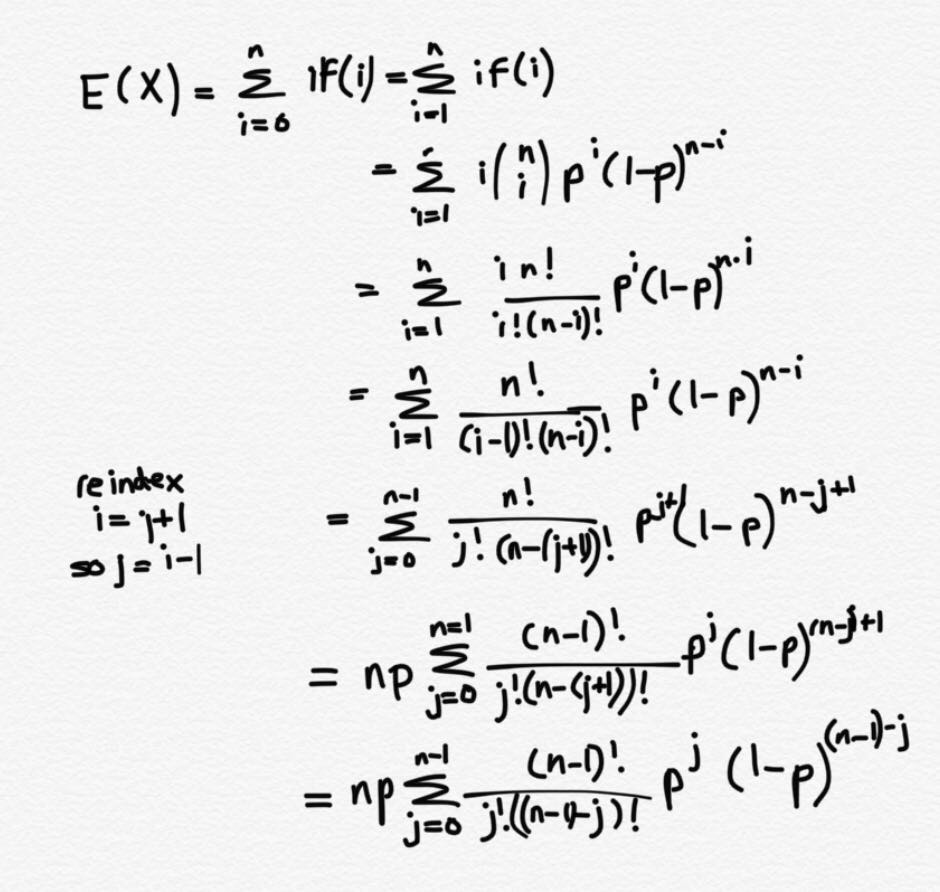 E(X) = ∑_{i=0}^{n} if(i) = ∑_{i-1}^{n} if(i)
= ∑_{i=1}^{n} i (n i) p^i (1-p)^{n-i}
= ∑_{i=1}^{n} \frac{i n!}{i!(n-i)!} p^i (1-p)^{n-i}
= ∑_{i=1}^{n} \frac{n!}{(i-1)!(n-i)!} p^i (1-p)^{n-i}
reindex
i = j+1
so j = i-1
= ∑_{j=0}^{n-1} \frac{n!}{j!(n-(j+1))!} p^{j+1} (1-p)^{n-j+1}
= np ∑_{j=0}^{n=1} \frac{(n-1)!}{j!(n-(j+1))!} p^j (1-p)^{(n-j+1}
= np ∑_{j=0}^{n-1} \frac{(n-1)!}{j!((n-1)-j)!} p^j (1-p)^{(n-1)-j}